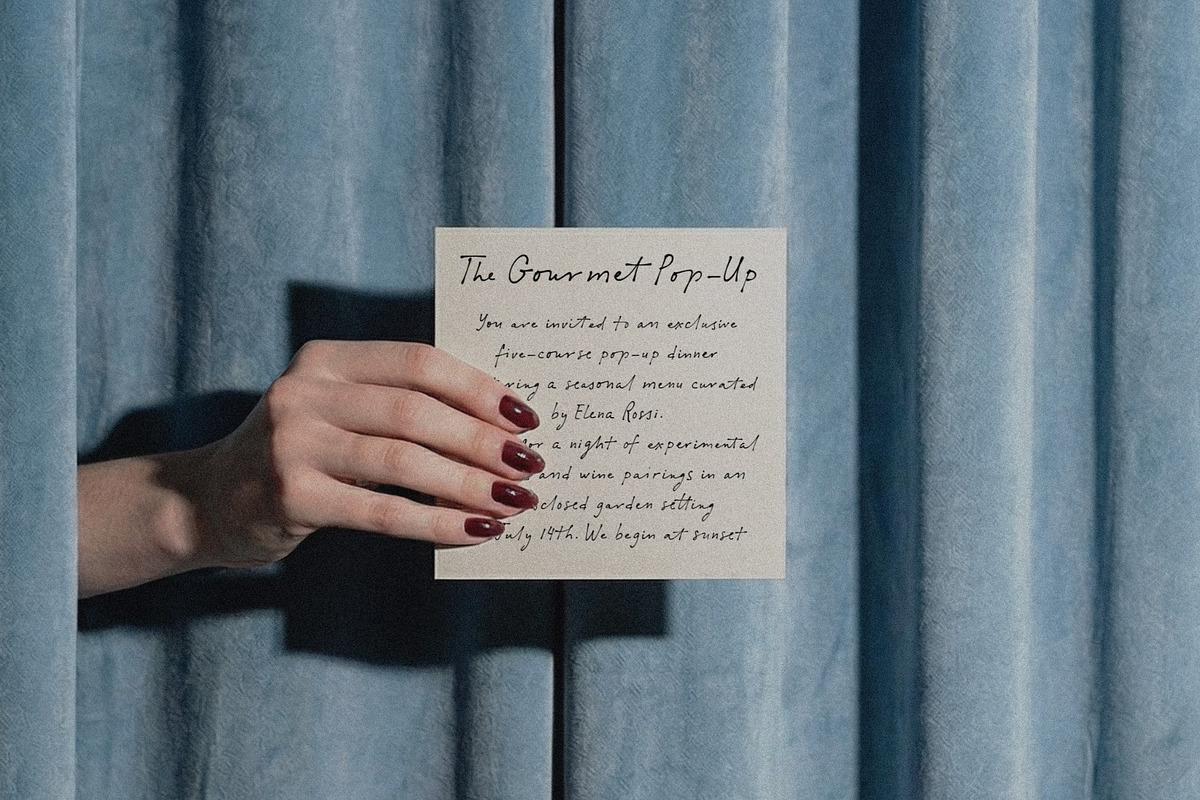 The Gourmet Pop-Up
You are invited to an exclusive
five-course pop-up dinner
a seasonal menu curated
by Elena Rossi.
for a night of experimental
and wine pairings in an
garden setting
July 14th. We begin at sunset